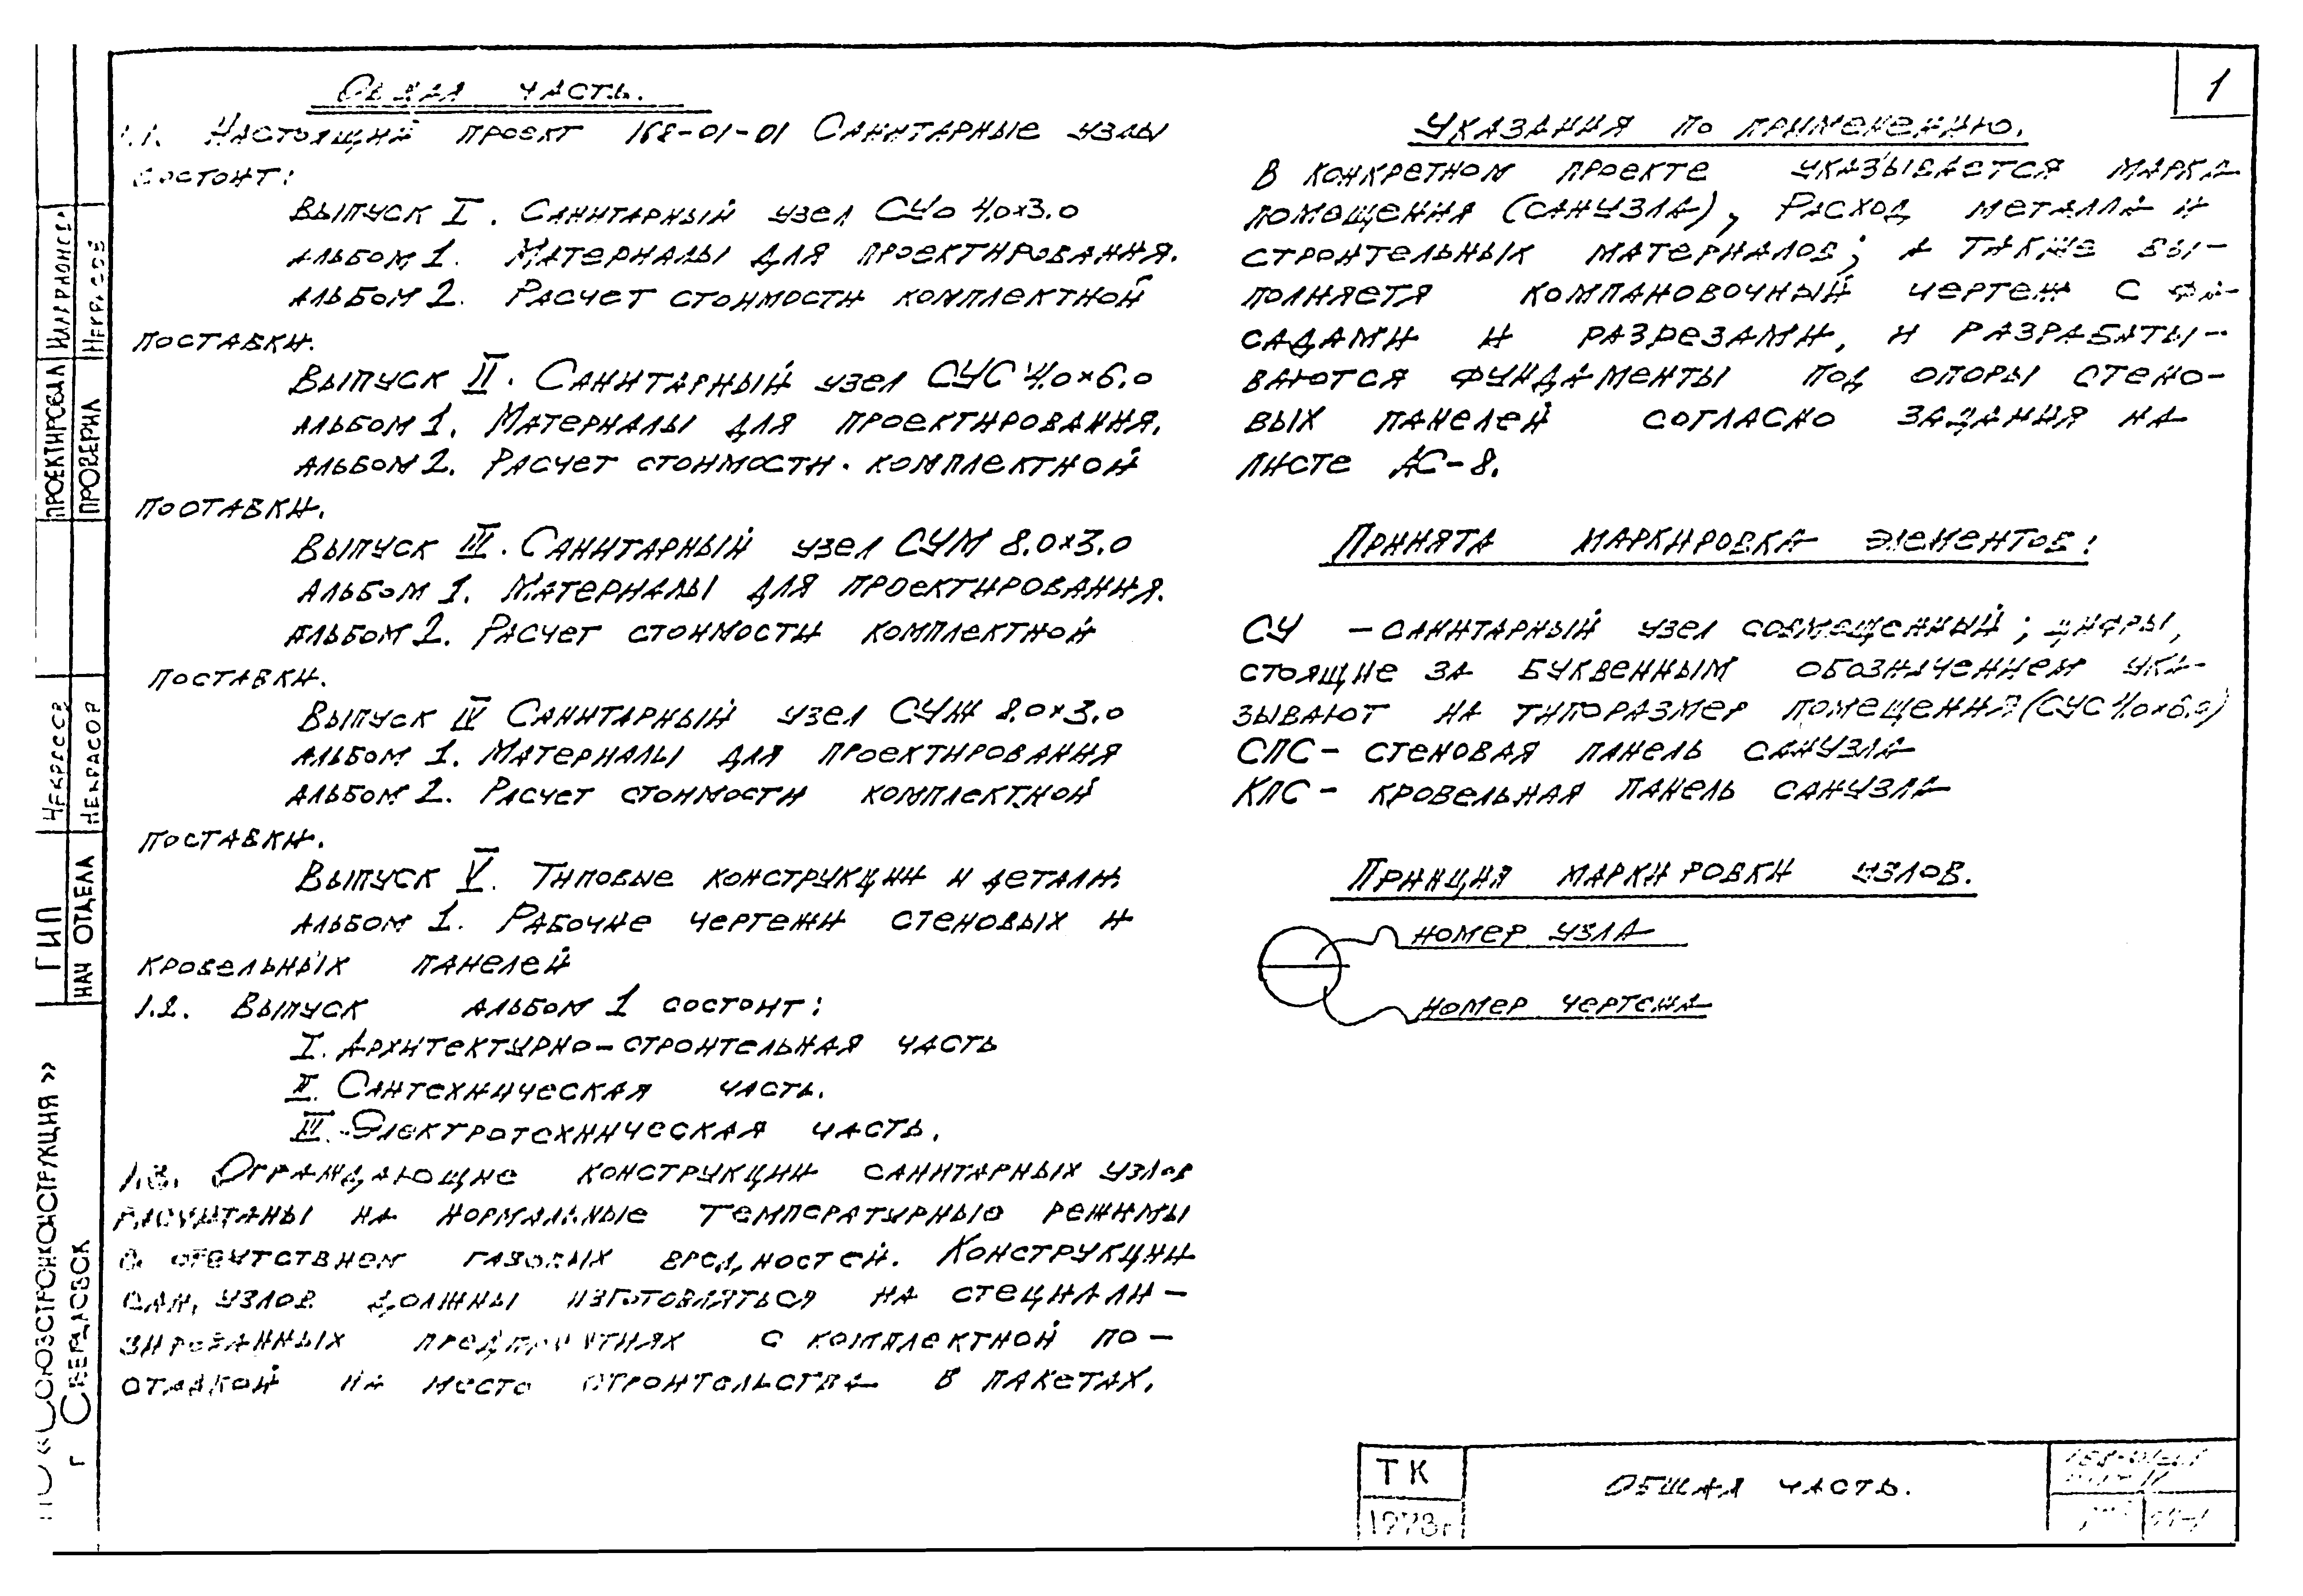 Общая часть.
1.1. Настоящий проект 168-01-01 Санитарные узлы
состоит:
Выпуск I. Санитарный узел СУО 4.0×3.0
альбом 1. Материалы для проектирования.
альбом 2. Расчет стоимости комплектной
поставки.
Выпуск II. Санитарный узел СУС 4.0×6.0
альбом 1. Материалы для проектирования.
альбом 2. Расчет стоимости комплектной
поставки.
Выпуск III. Санитарный узел СУМ 8.0×3.0
Альбом 1. Материалы для проектирования.
альбом 2. Расчет стоимости комплектной
поставки.
Выпуск IV Санитарный узел СУЖ 8.0×3.0
альбом 1. Материалы для проектирования
альбом 2. Расчет стоимости комплектной
поставки.
Выпуск V. Типовые конструкции и детали.
альбом 1. Рабочие чертежи стеновых и
кровельных панелей
1.2. Выпуск альбом 1 состоит:
I. Архитектурно-строительная часть
II. Сантехническая часть.
III. Электротехническая часть.
1.3. Ограждающие конструкции санитарных узлов
расчитаны на нормальные температурные режимы
в отсутствием газовых вредностей. Конструкции
сан. узлов должны изготовляться на специали-
зированных предприятиях с комплектной по-
ставкой на место строительства в пакетах.
1
Указания по применению.
В конкретном проекте указывается марка
помещения (санузла), Расход металла и
строительных материалов; а также вы-
полняетя компановочный чертеж с фа-
садами и разрезами, и разрабаты-
ваются фундаменты под опоры стено-
вых панелей согласно задания на
листе АС-8.
Принята маркировка элементов:
СУ - санитарный узел совмещенный; цифры,
стоящие за буквенным обозначением ука-
зывают на типоразмер помещения (СУС 4.0×6.0)
СПС - стеновая панель санузла
КПС - кровельная панель санузла
Принция маркировки узлов.
номер узла
номер чертежа
ТК
1978г
Общая часть.
проектировал Илларионов
проверил Некрасов
ГИП Некрасов
нач отдела Некрасов
«Союзстройконструкция»
г Свердловск